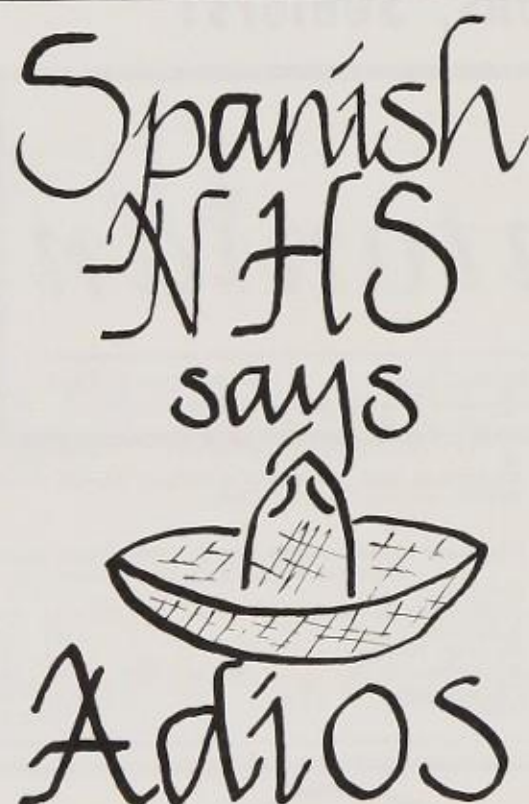 Spanish
NHS
says
Adios